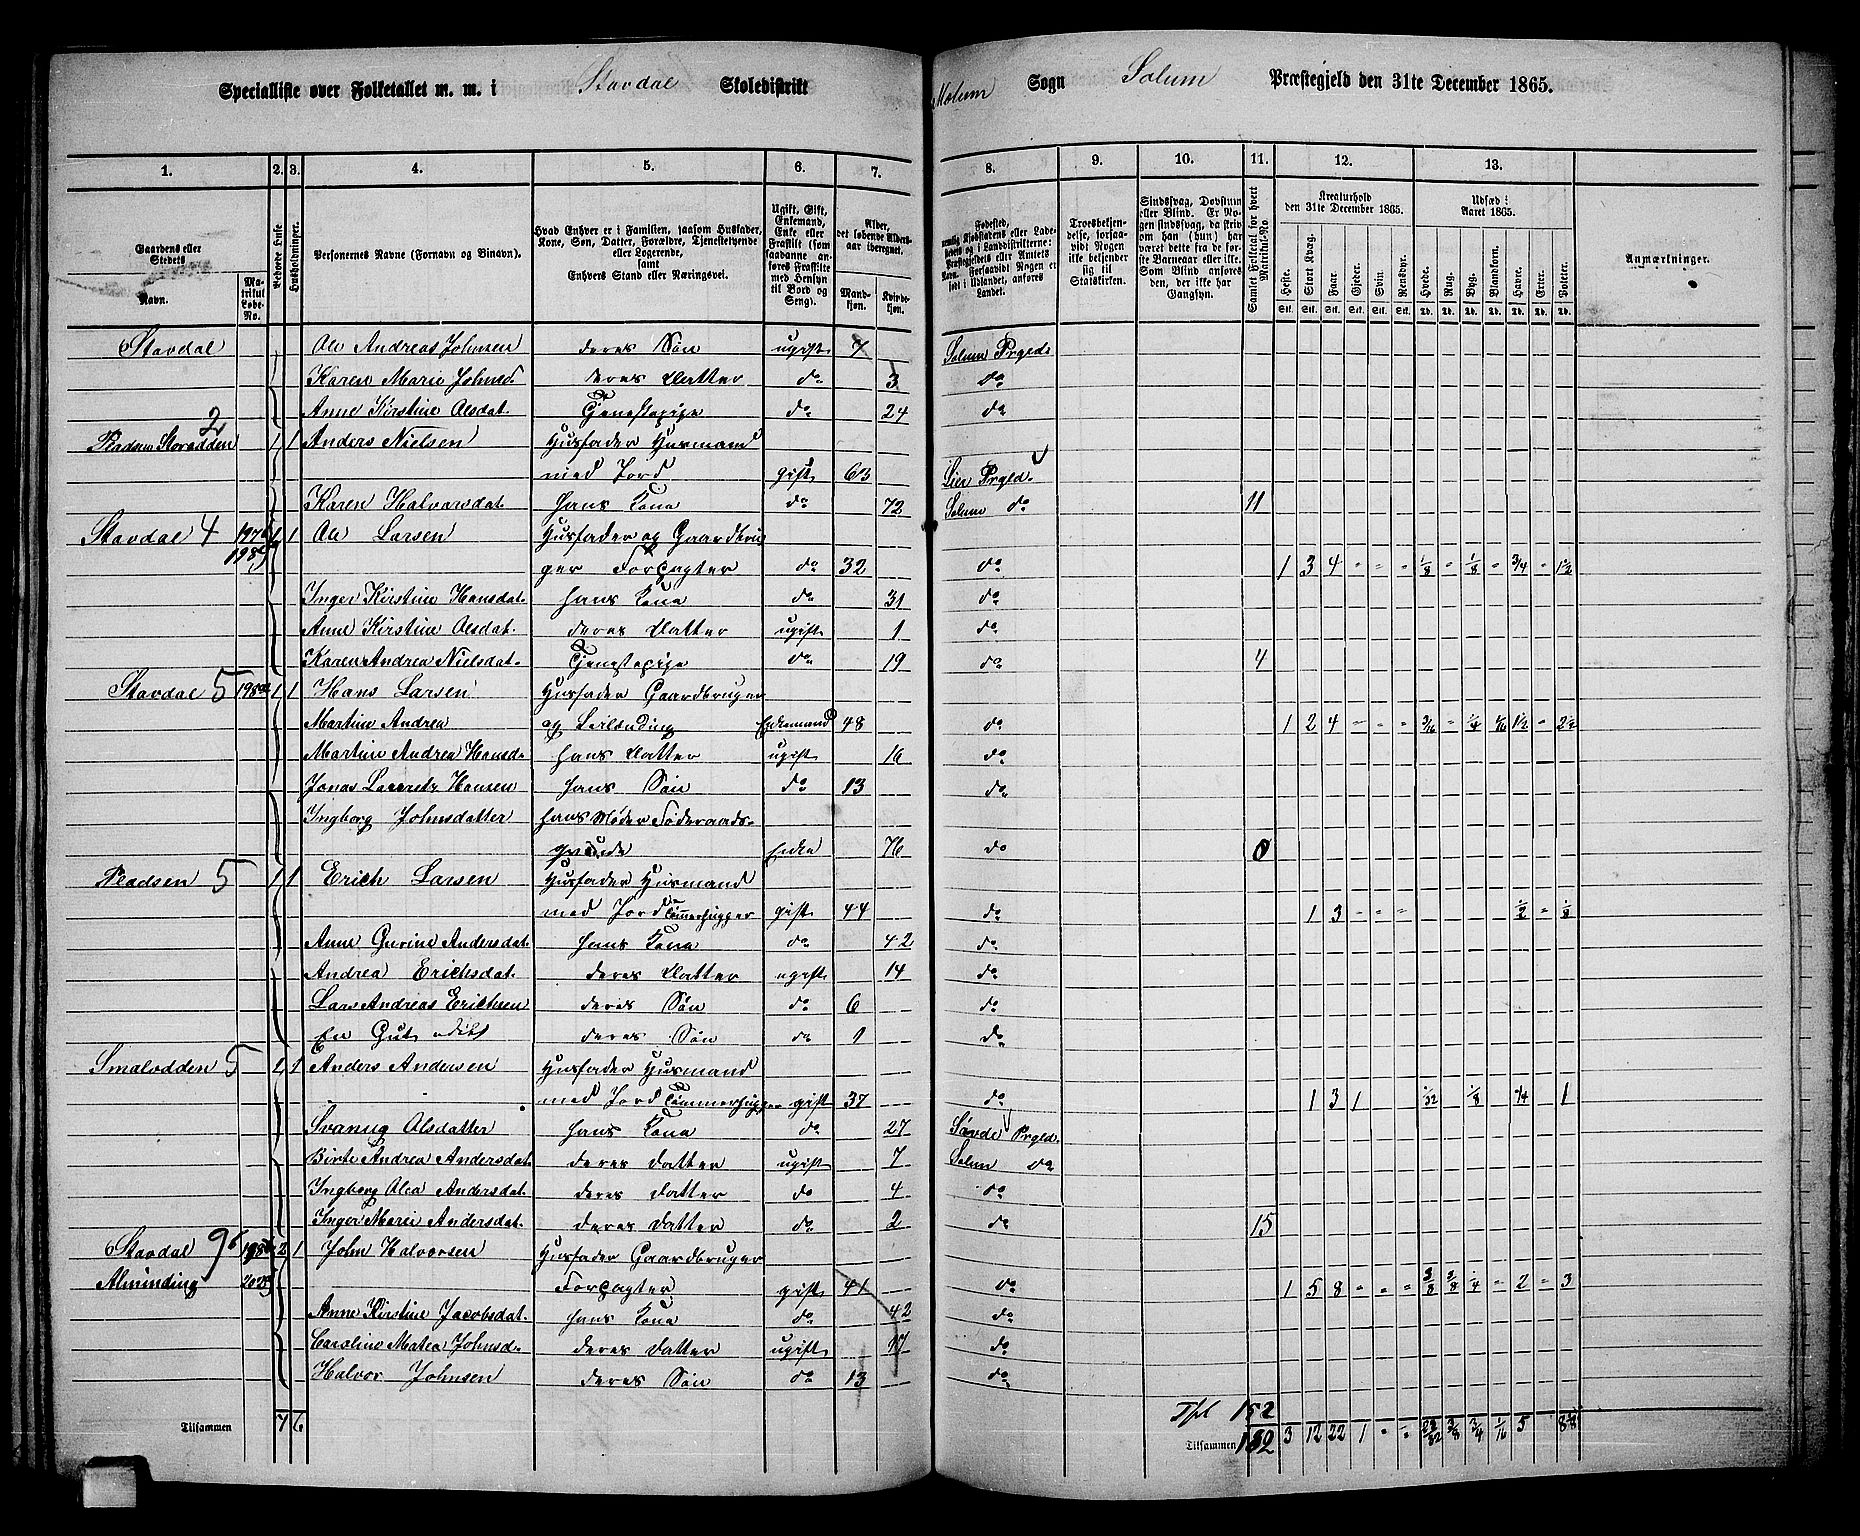 Specialliste over Folketallet m. m. i Stavdal Skoledistrikt Melum Sogn Solum Præstegjeld den 31te December 1865.
1. 2. 3. 4. 5. 6. 7. 8. 9. 10. 11. 12. 13.
Gaardens eller Stedets Navn. Matrikul Løbe-No. Beboede Huse Husholdninger. Personernes Navne (Fornavn og Binavn). Hvad Enhver er i Familien, saasom Husfader, Kone, Søn, Datter, Forældre, Tjenestetyende eller Logerende, samt Enhvers Stand eller Næringsvei. Ugift, Gift, Enkemand, Enke eller Fraskilt (som saadanne anføres Fraskilte med Hensyn til Bord og Seng). Alder, det løbende Aldersaar iberegnet. Mandkjøn. Kvindekjøn.
Troesbekjendelse, forsaavidt Nogen ikke bekjender sig til Statskirken. Sindssvag, Døvstum eller Blind. Samlet Folketal for hvert Matrikul-No. Kreaturhold den 31te December 1865. Udsæd i Aaret 1865. Anmærkninger.
Heste. Stort Kvæg. Faar. Gjeder. Svin. Rensdyr. Hvede. Rug. Byg. Blandkorn. Havre. Erter. Poteter.
Stavdal Ole Andreas Johnsen deres Søn ugift 4 Solum Prgeld.
Karen Marie Johnsd. deres Datter do 3 do
Anne Kirstine Olsdat. Tjenestepige do 24 do
2
Pladsen Storødden 1 1 Anders Nielsen Husfader Husmand
med Jord gift 63 Lier Prgeld.
Karen Halvorsdat. hans Kone do 72 Solum do 11
Stavdal 4 197 1 1 Ole Larsen Husfader og Gaardbru
198 ger Forpagter do 32 do 1 3 4 - - - 1/8 - 1/8 - 3/4 - 1 1/2
Inger Kirstine Hansdat. hans Kone do 31 do
Anne Kirstine Olsdat. deres Datter ugift 1 do
Karen Andrea Nielsdat. Tjenestepige do 19 do 4
Stavdal 5 198 1 1 Hans Larsen Husfader Gaardbruger
Martine Andrea og Selveier Enkemand 48 do 1 2 4 - - - 3/16 - 1/4 1/16 1 1/2 - 2 1/2
Martine Andrea Hansd. hans Datter ugift 16 do
Jonas Laurets Hansen hans Søn do 13 do
Ingborg Johnsdatter hans Moder Føderaads-
Enke 76 do
Pladsen 5 1 1 Erich Larsen Husfader Husmand
med Jord Tømmerhugger gift 44 do 1 3 - - - 1/2 - 1/8
Anne Gurine Andersdat. hans Kone do 42 do
Andrea Erichsdat. deres Datter ugift 14 do
Lars Andreas Erichsen deres Søn do 6 do
En Gut udøbt deres Søn do 1 do
Smalødden 5 1 1 Anders Andersen Husfader Husmand
med Jord Tømmerhugger gift 37 do 1 3 1 1/32 1/8 3/4 1
Svanug Olsdatter hans Kone do 27 Søvde Prgeld.
Birte Andrea Andersdat. deres Datter ugift 7 Solum do
Ingborg Olea Andersdat. deres Datter do 4 do
Inger Marie Andersdat. deres Datter do 2 do 15
Stavdal 9 198 2 1 John Halvorsen Husfader Gaardbruger
Alminding Forpagter gift 41 do 1 5 8 - - - 3/8 3/8 1/4 - 2 - 3
Anne Kirstine Jacobsdat. hans Kone do 42 do
Caroline Matea Johnsd. deres Datter ugift 17 do
Halvor Johnsen deres Søn do 13 do
152
Tilsammen 7 6 Tilsammen 3 12 22 1 - - 23/32 3/8 3/4 1/16 5